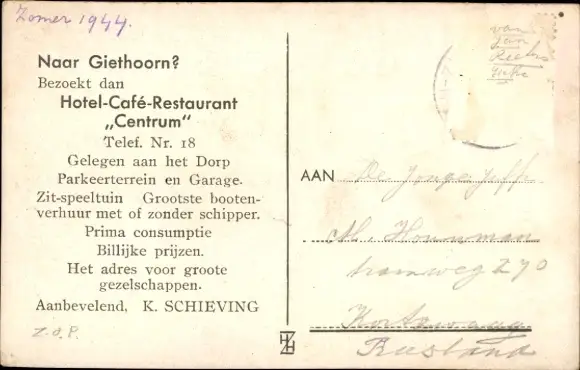 Zomer 1944.
Naar Giethoorn?
Bezoekt dan
Hotel-Café-Restaurant
„Centrum”
Telef. Nr. 18
Gelegen aan het Dorp
Parkeerterrein en Garage.
Zit-speeltuin Grootste booten-
verhuur met of zonder schipper.
Prima consumptie
Billijke prijzen.
Het adres voor groote
gezelschappen.
Aanbevelend, K. SCHIEVING
Z.O.P.
van
Jan
AAN De Jonge Juffr
M. Hounman
tramweg 270